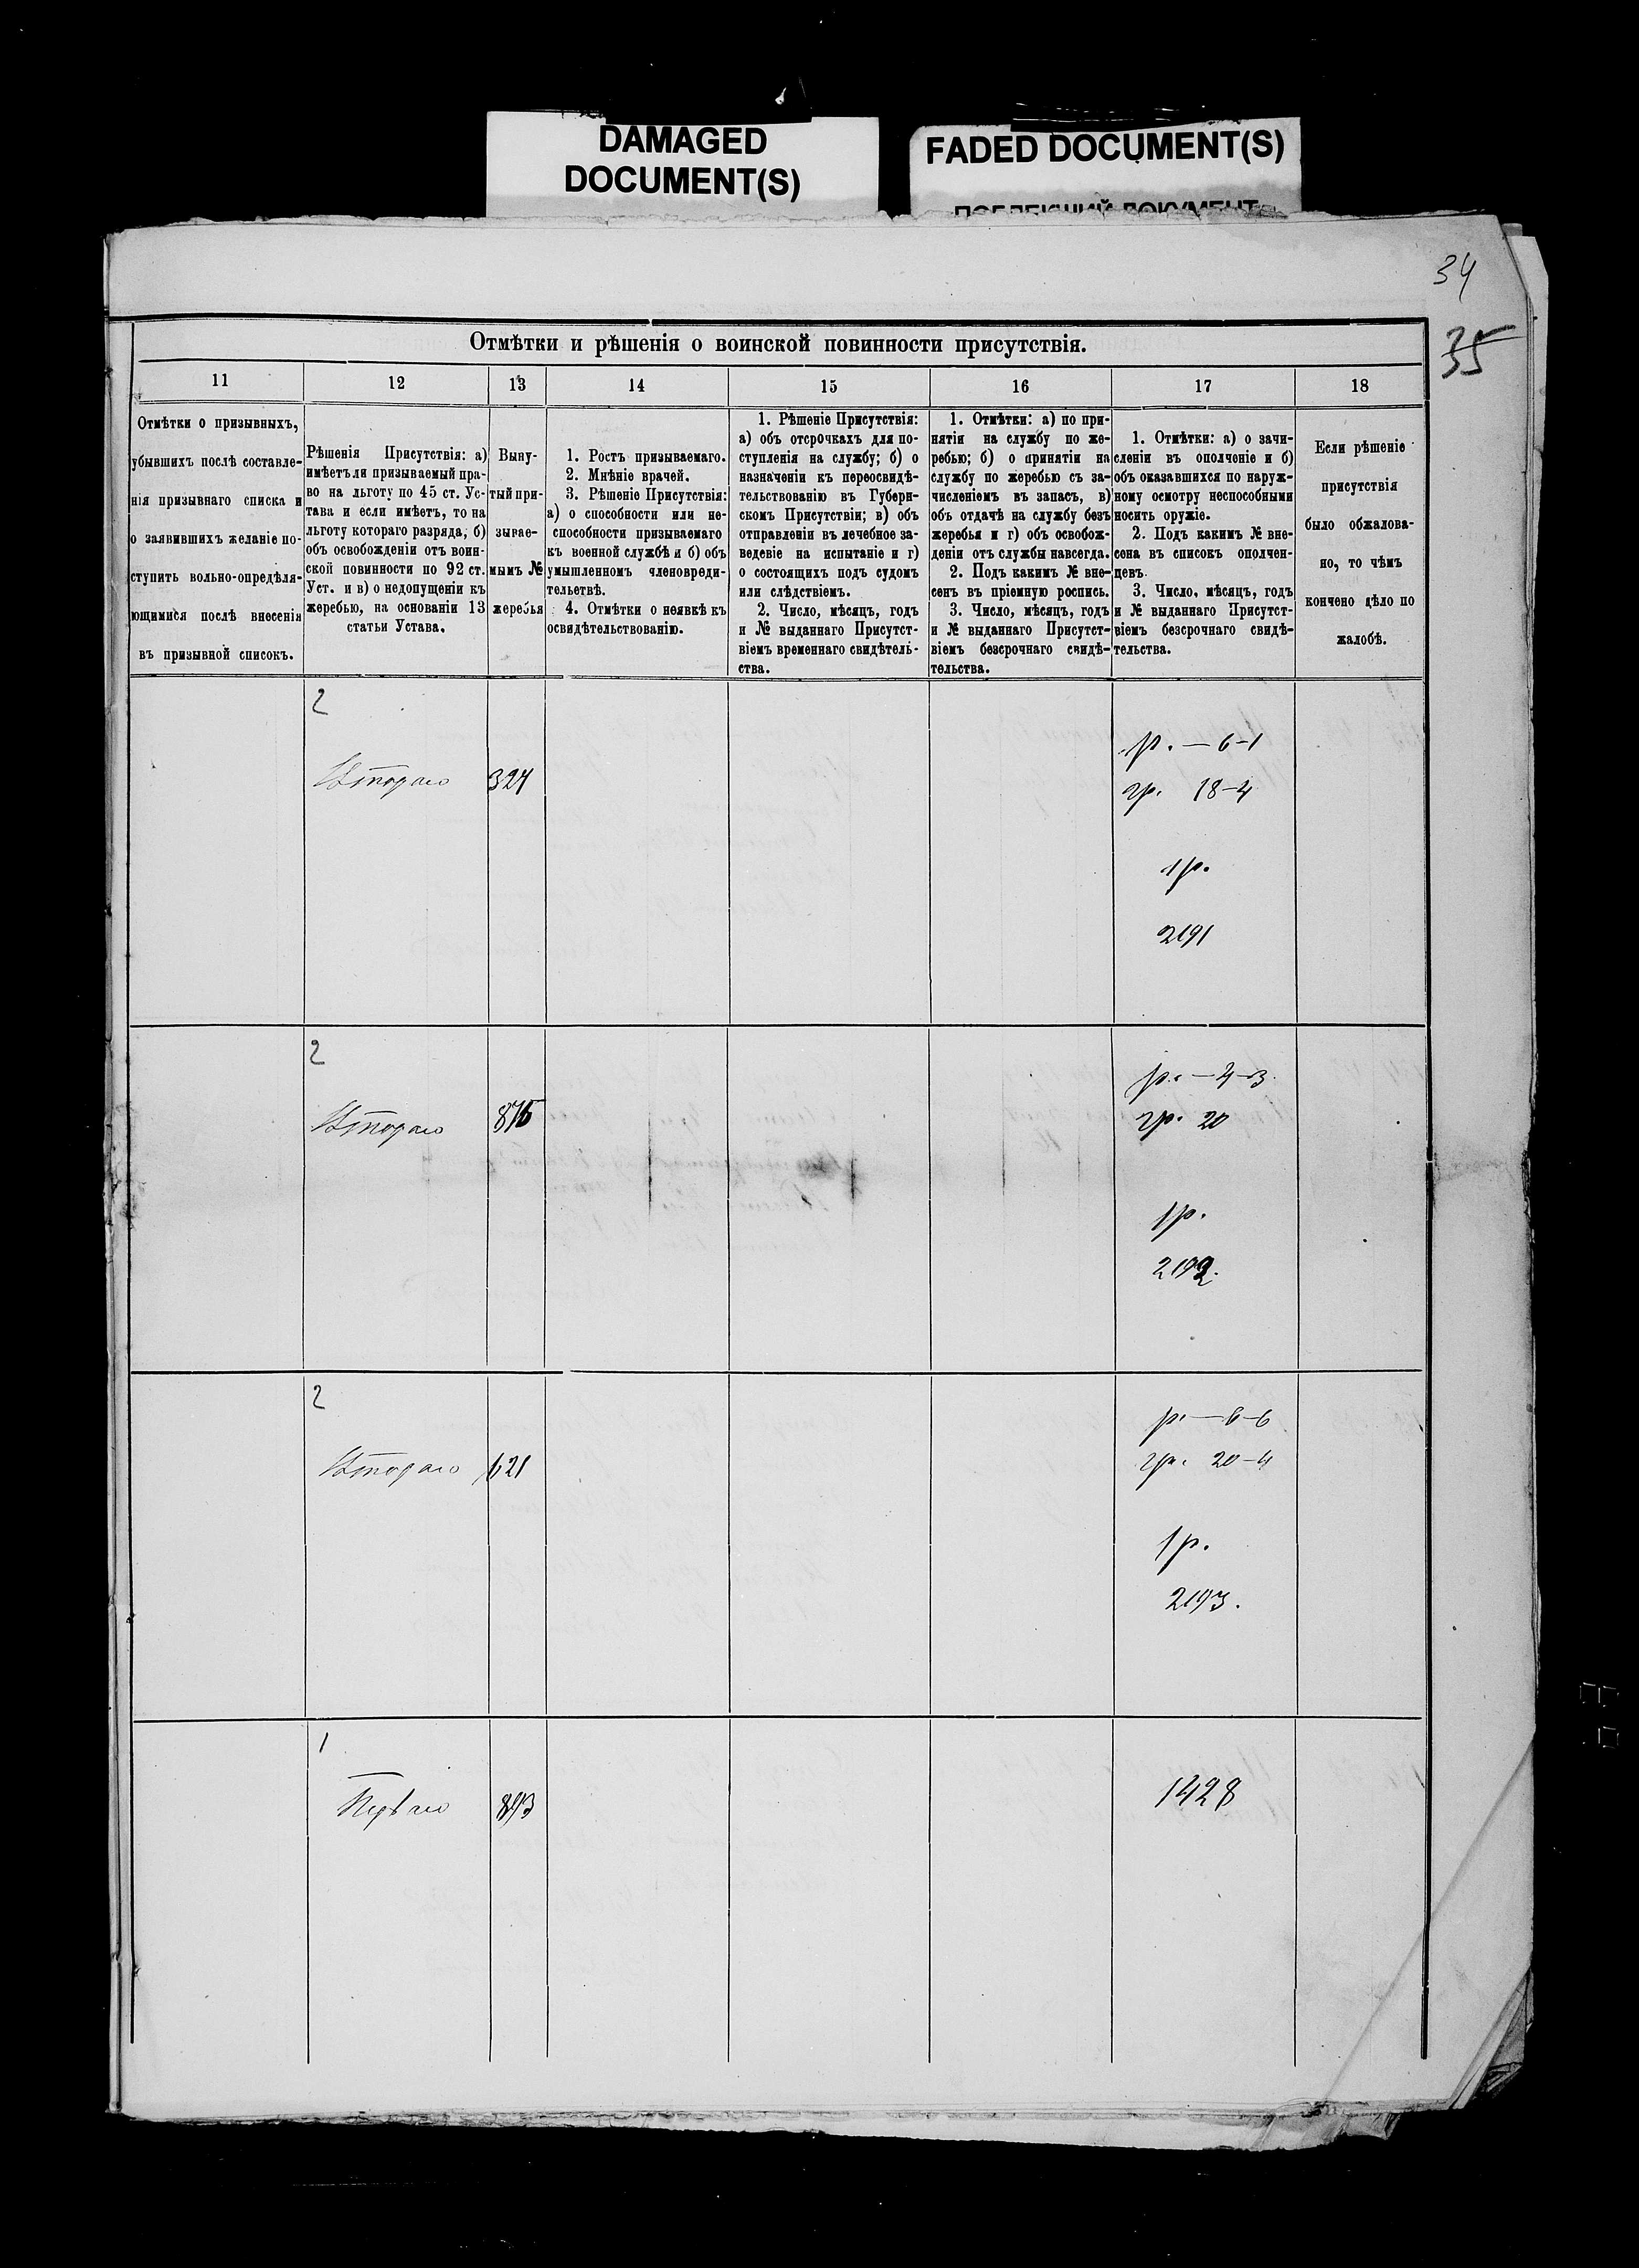 DAMAGED
DOCUMENT(S)
FADED DOCUMENT(S)
34
35
Отмѣтки и рѣшенія о воинской повинности присутствія.
11
12
13
14
15
16
17
18
Отмѣтки о призывныхъ,
убывшихъ послѣ составле-
нія призывнаго списка и
о заявившихъ желаніе по-
ступить вольно-опредѣля-
ющимися послѣ внесенія
въ призывной списокъ.
Рѣшенія Присутствія: а)
имѣетъ ли призываемый пра-
во на льготу по 45 ст. Ус-
тава и если имѣетъ, то на
льготу котораго разряда, б)
объ освобожденіи отъ воин-
ской повинности по 92 ст.
Уст. и в) о недопущеніи къ
жеребью, на основаніи 13
статьи Устава.
Выну-
тый при-
зывае-
мымъ №
жеребья
1. Ростъ призываемаго.
2. Мнѣніе врачей.
3. Рѣшеніе Присутствія:
а) о способности или не-
способности призываемаго
къ военной службѣ и б) объ
умышленномъ членовреди-
тельствѣ.
4. Отмѣтки о неявкѣ къ
освидѣтельствованію.
1. Рѣшеніе Присутствія:
а) объ отсрочкахъ для по-
ступленія на службу; б) о
назначеніи къ переосвидѣ-
тельствованію въ Губерн-
скомъ Присутствіи; в) объ
отправленіи въ лечебное за-
веденіе на испытаніе и г)
о состоящихъ подъ судомъ
или слѣдствіемъ.
2. Число, мѣсяцъ, годъ
и № выданнаго Присутст-
віемъ временнаго свидѣтель-
ства.
1. Отмѣтки: а) по при-
нятіи на службу по же-
ребью; б) о принятіи на
службу по жеребью съ за-
численіемъ въ запасъ, в)
объ отдачѣ на службу безъ
жеребья и г) объ освобож-
деніи отъ службы навсегда.
2. Подъ какимъ № вне-
сенъ въ пріемную роспись.
3. Число, мѣсяцъ, годъ
и № выданнаго Присутст-
віемъ безсрочнаго свидѣ-
тельства.
1. Отмѣтки: а) о зачи-
сленіи въ ополченіе и б)
объ оказавшихся по наруж-
ному осмотру неспособными
носить оружіе.
2. Подъ какимъ № вне-
сена въ списокъ ополчен-
цевъ.
3. Число, мѣсяцъ, годъ
и № выданнаго Присутст-
віемъ безсрочнаго свидѣ-
тельства.
Если рѣшеніе
присутствія
было обжалова-
но, то чѣмъ
кончено дѣло по
жалобѣ.
2
Втораго
324
р. — 6-1
гр. 18-4
1 р.
2191
2
Втораго
р. — 4-3
гр. 20
1 р.
2192.
2
Втораго
621
р. — 6-6
гр. 20-4
1 р.
2193.
1
Перваго
893
1428